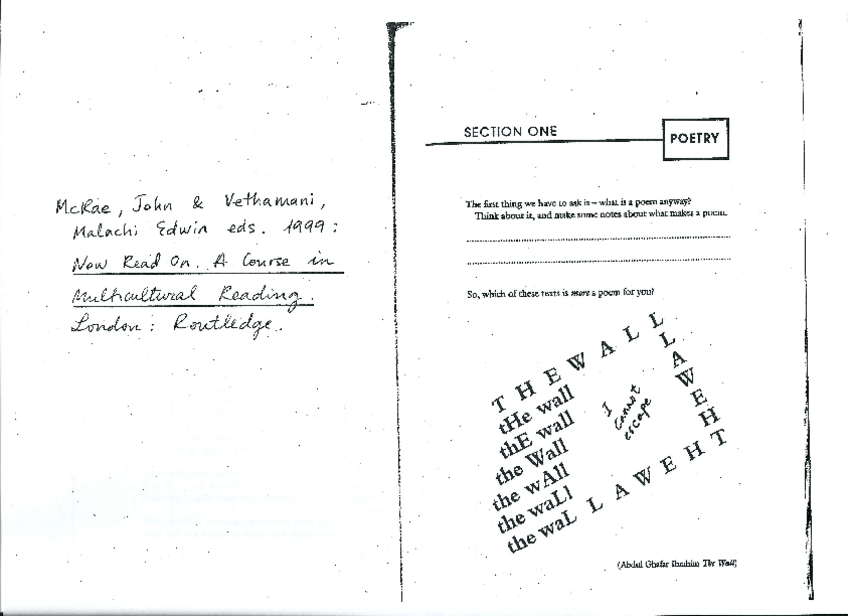 McRae, John & Vethamani,
Malachi Edwin eds. 1999:
Now Read On. A Course in
Multicultural Reading.
London: Routledge.
SECTION ONE
POETRY
The first thing we have to ask is – what is a poem anyway?
Think about it, and make some notes about what makes a poem.
So, which of these texts is more a poem for you?
T H E W A L L
L A W E H T
tHe wall
thE wall
the Wall
the wAll
the waLl
the waL L A W E H T
I
cannot
escape
(Abdul Ghafar Ibrahim The Wall)